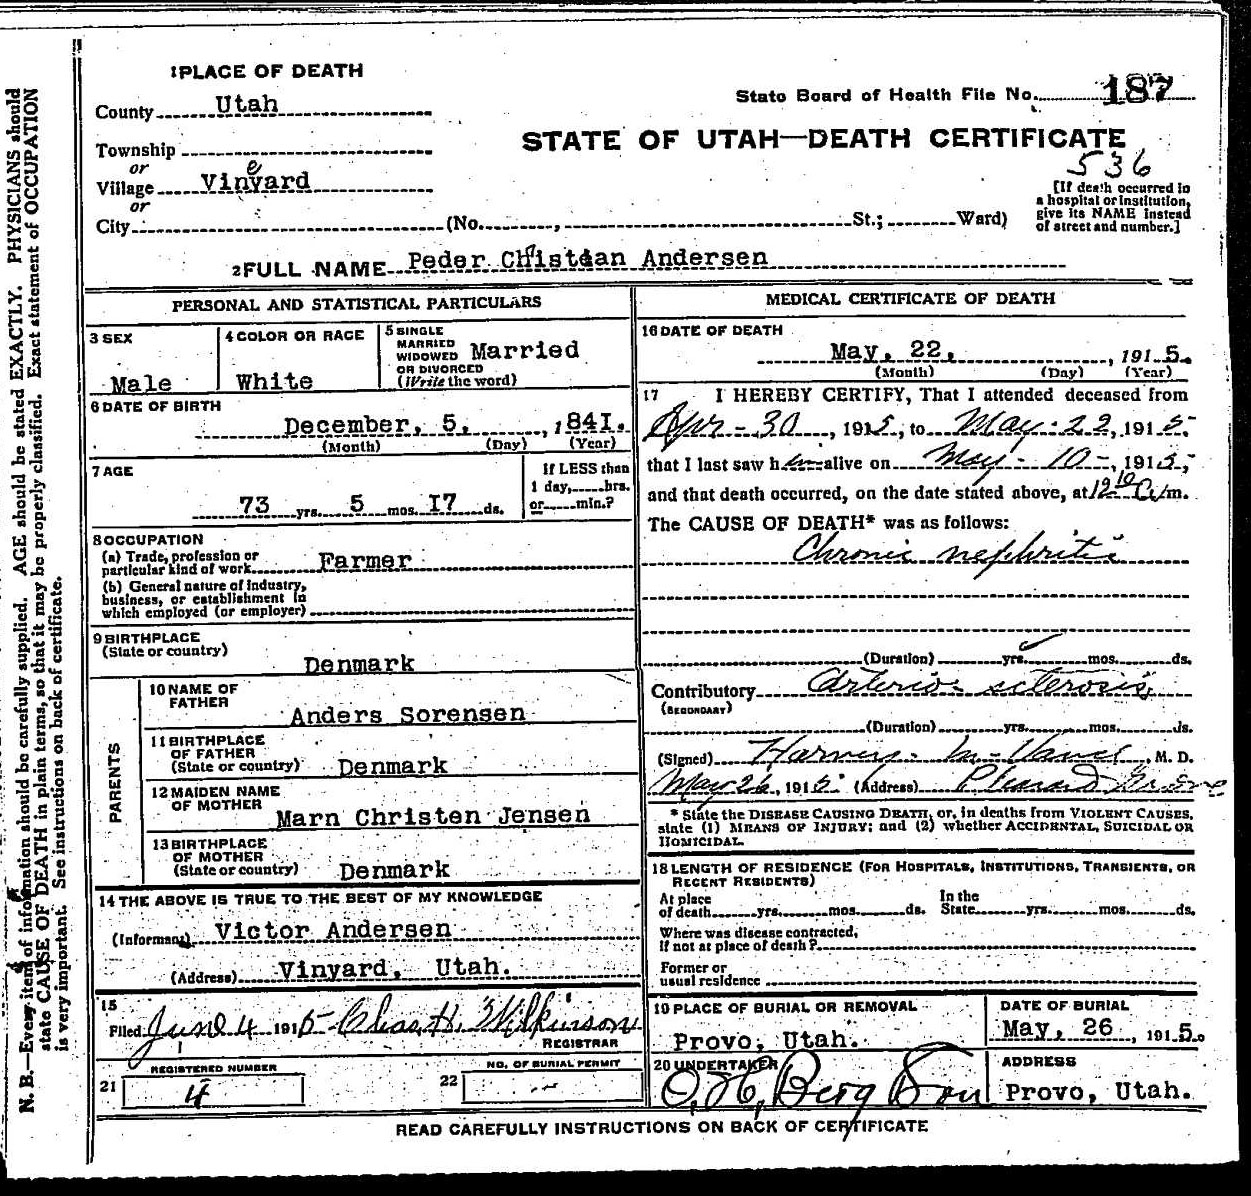 1 PLACE OF DEATH
County Utah
Township
or
Village Vinyard
e
or
City (No. , St.; Ward)
State Board of Health File No. 187
STATE OF UTAH—DEATH CERTIFICATE
536
[If death occurred in
a hospital or institution,
give its NAME instead
of street and number.]
2 FULL NAME Peder Christian Andersen
PERSONAL AND STATISTICAL PARTICULARS
3 SEX
Male
4 COLOR OR RACE
White
5 SINGLE
MARRIED
WIDOWED
OR DIVORCED
(Write the word)
Married
6 DATE OF BIRTH
December, 5, , 1841.
(Month) (Day) (Year)
7 AGE
73 yrs. 5 mos. I7 ds.
If LESS than
1 day, hrs.
or min.?
8 OCCUPATION
(a) Trade, profession or
particular kind of work Farmer
(b) General nature of industry,
business, or establishment in
which employed (or employer)
9 BIRTHPLACE
(State or country)
Denmark
PARENTS
10 NAME OF
FATHER
Anders Sorensen
11 BIRTHPLACE
OF FATHER
(State or country) Denmark
12 MAIDEN NAME
OF MOTHER
Marn Christen Jensen
13 BIRTHPLACE
OF MOTHER
(State or country) Denmark
14 THE ABOVE IS TRUE TO THE BEST OF MY KNOWLEDGE
(Informant) Victor Andersen
(Address) Vinyard, Utah.
15
Filed June 4 1915 Chas. H. Wilkinson
REGISTRAR
REGISTERED NUMBER
21 4
NO. OF BURIAL PERMIT
22 --
MEDICAL CERTIFICATE OF DEATH
16 DATE OF DEATH
May, 22, , 1915.
(Month) (Day) (Year)
17 I HEREBY CERTIFY, That I attended deceased from
Apr - 30 , 1915, to May - 22, 1915,
that I last saw him alive on May - 10 -, 1915,
and that death occurred, on the date stated above, at 12 10 a m.
The CAUSE OF DEATH* was as follows:
Chronic nephritis
(Duration) yrs. mos. ds.
Contributory Arterio - sclerosis
(SECONDARY)
(Duration) yrs. mos. ds.
(Signed) Harvey M. Vance M. D.
May 26, 1915 (Address) Pleasant Grove
* State the DISEASE CAUSING DEATH, or, in deaths from VIOLENT CAUSES,
state (1) MEANS OF INJURY; and (2) whether ACCIDENTAL, SUICIDAL OR
HOMICIDAL.
18 LENGTH OF RESIDENCE (FOR HOSPITALS, INSTITUTIONS, TRANSIENTS, OR
RECENT RESIDENTS)
At place In the
of death yrs. mos. ds. State yrs. mos. ds.
Where was disease contracted,
if not at place of death?
Former or
usual residence
19 PLACE OF BURIAL OR REMOVAL
Provo, Utah.
DATE OF BURIAL
May, 26 , 1915.
20 UNDERTAKER
O. H. Berg Son
ADDRESS
Provo, Utah.
READ CAREFULLY INSTRUCTIONS ON BACK OF CERTIFICATE
N. B.—Every item of information should be carefully supplied. AGE should be stated EXACTLY. PHYSICIANS should
state CAUSE OF DEATH in plain terms, so that it may be properly classified. Exact statement of OCCUPATION
is very important. See instructions on back of certificate.